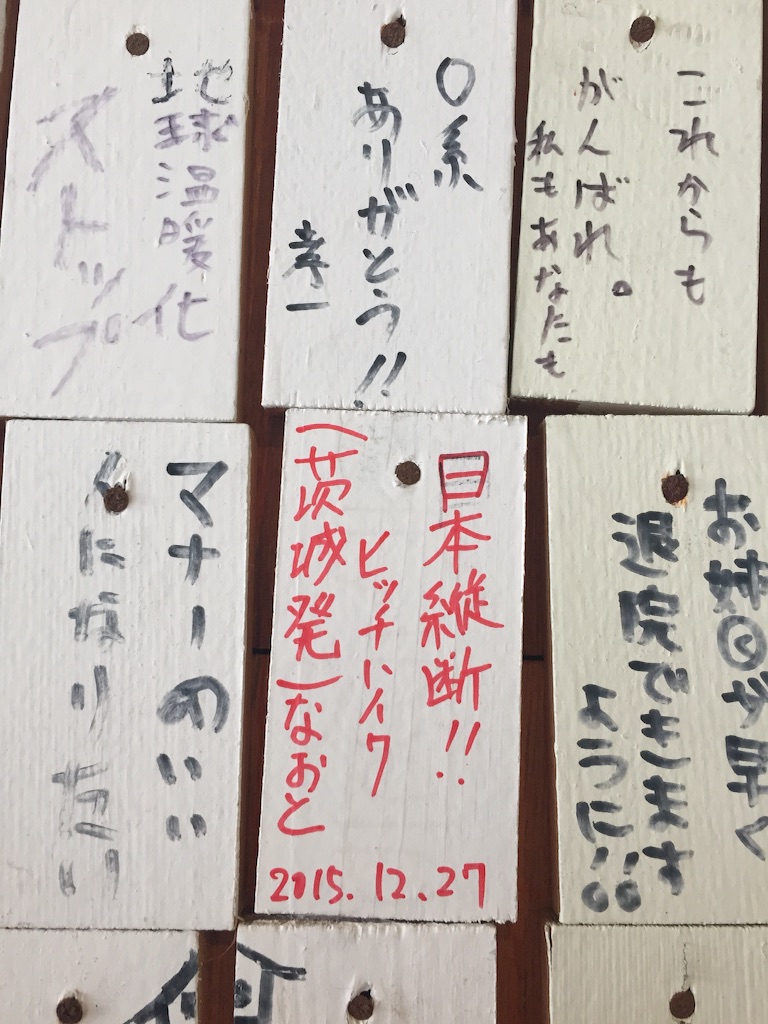 これからも
がんばれ。
私もあなたも
0系
ありがとう!!
孝一
地球温暖化
ストップ
お姉◎が早く
退院できます
ように!!
日本縦断!!
ヒッチハイク
(茨城発)なおと
2015.12.27
マナーのいい
人になりたい